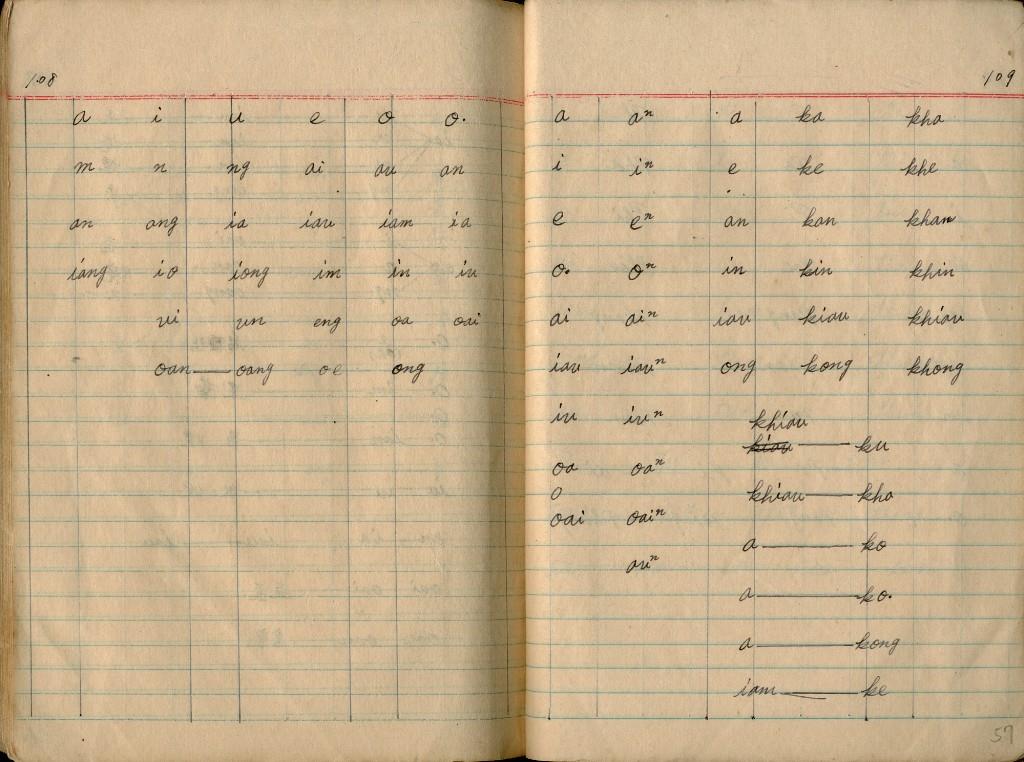 108
a i u e o o.
m n ng ai au an
an ang ia iau iam ia
iáng io iong im in iu
ui un eng oa oai
oan — oang oe ong
109
a aⁿ a ka kha
i iⁿ e ke khe
e eⁿ an kan khan
o. oⁿ in kin khin
ai aiⁿ iau kiau khiau
iau iauⁿ ong kong khong
iu iuⁿ khiau
kiau — ku
oa oaⁿ
o khiau — kha
oai oaiⁿ
a — ko
auⁿ
a — ko.
a — kong
iam — ke
57